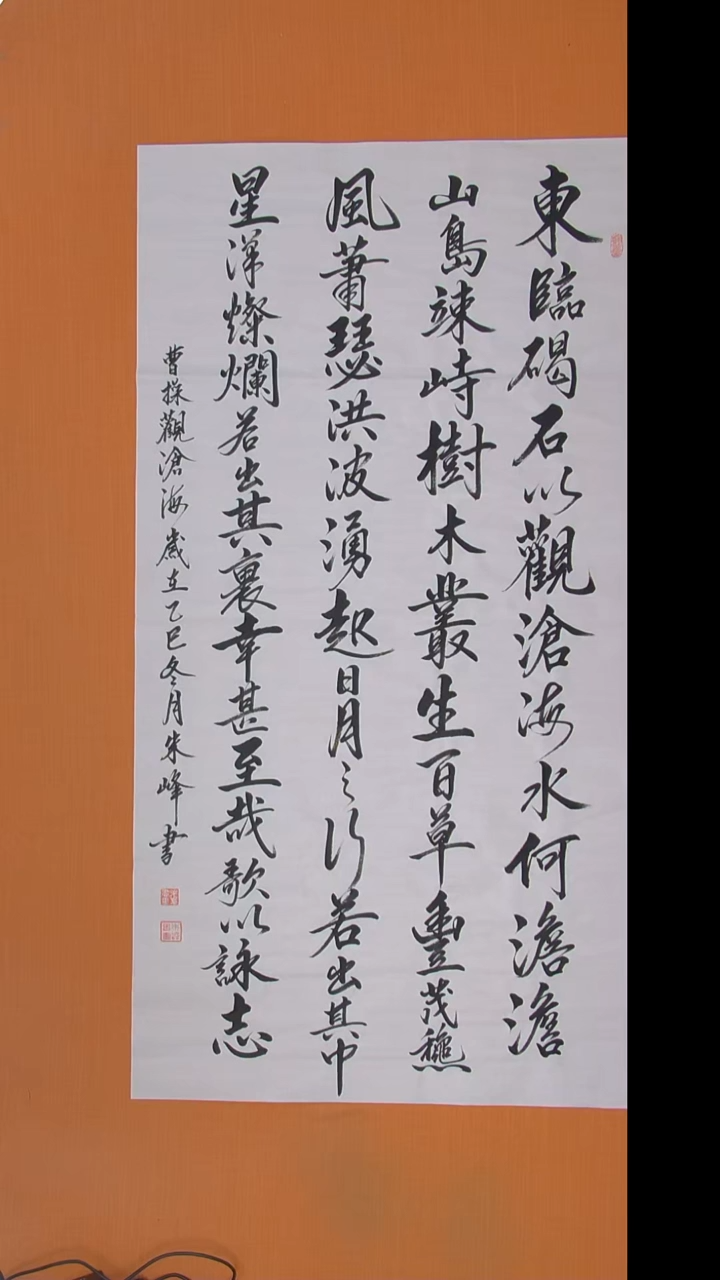 東臨碣石以觀滄海水何澹澹
山島竦峙樹木叢生百草豐茂穐
風蕭瑟洪波湧起日月之行若出其中
星漢燦爛若出其裏幸甚至哉歌以詠志
曹操觀滄海歲在乙巳冬月朱峰書